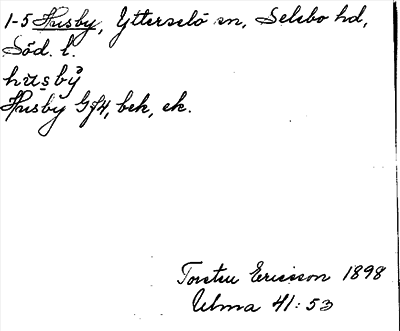 1-5 Husby, Ytterselö sn, Selebo hd,
Söd. l.
husby
Husby Gf4, bek, ek.
Torsten Ericsson 1898
Ulma 41:53